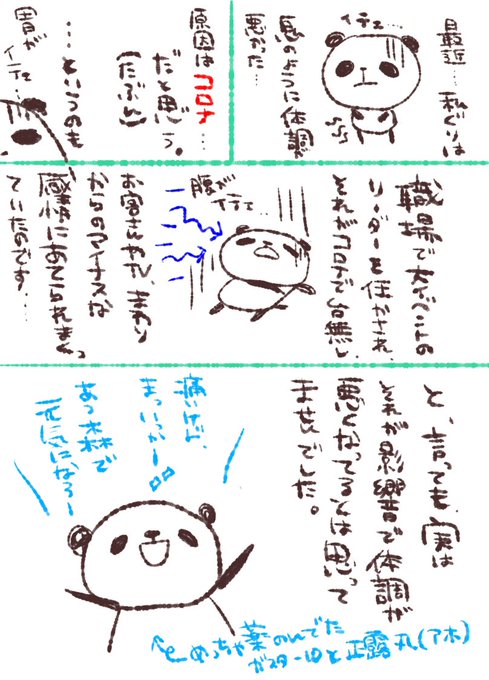 最近…私ぐりは
馬のように体調
悪かった…
イテェ…
原因はコロナ…
だと思う。
(たぶん)
…というのも
胃が
イテェ…
職場で大イベントの
リーダーを任かされ、
それがコロナで台無し
腹が
イテェ…
お客さんやTV、まわり
からのマイナスな
感情にあてられまくっ
ていたのです…
と、言っても、実は
それが影響で体調が
悪くなってるんは思って
ませんでした。
痛いけど、
まっいっかー♪♪
あつ森で
元気になろー
めっちゃ薬のんでた
ガスター10と正露丸(アホ)